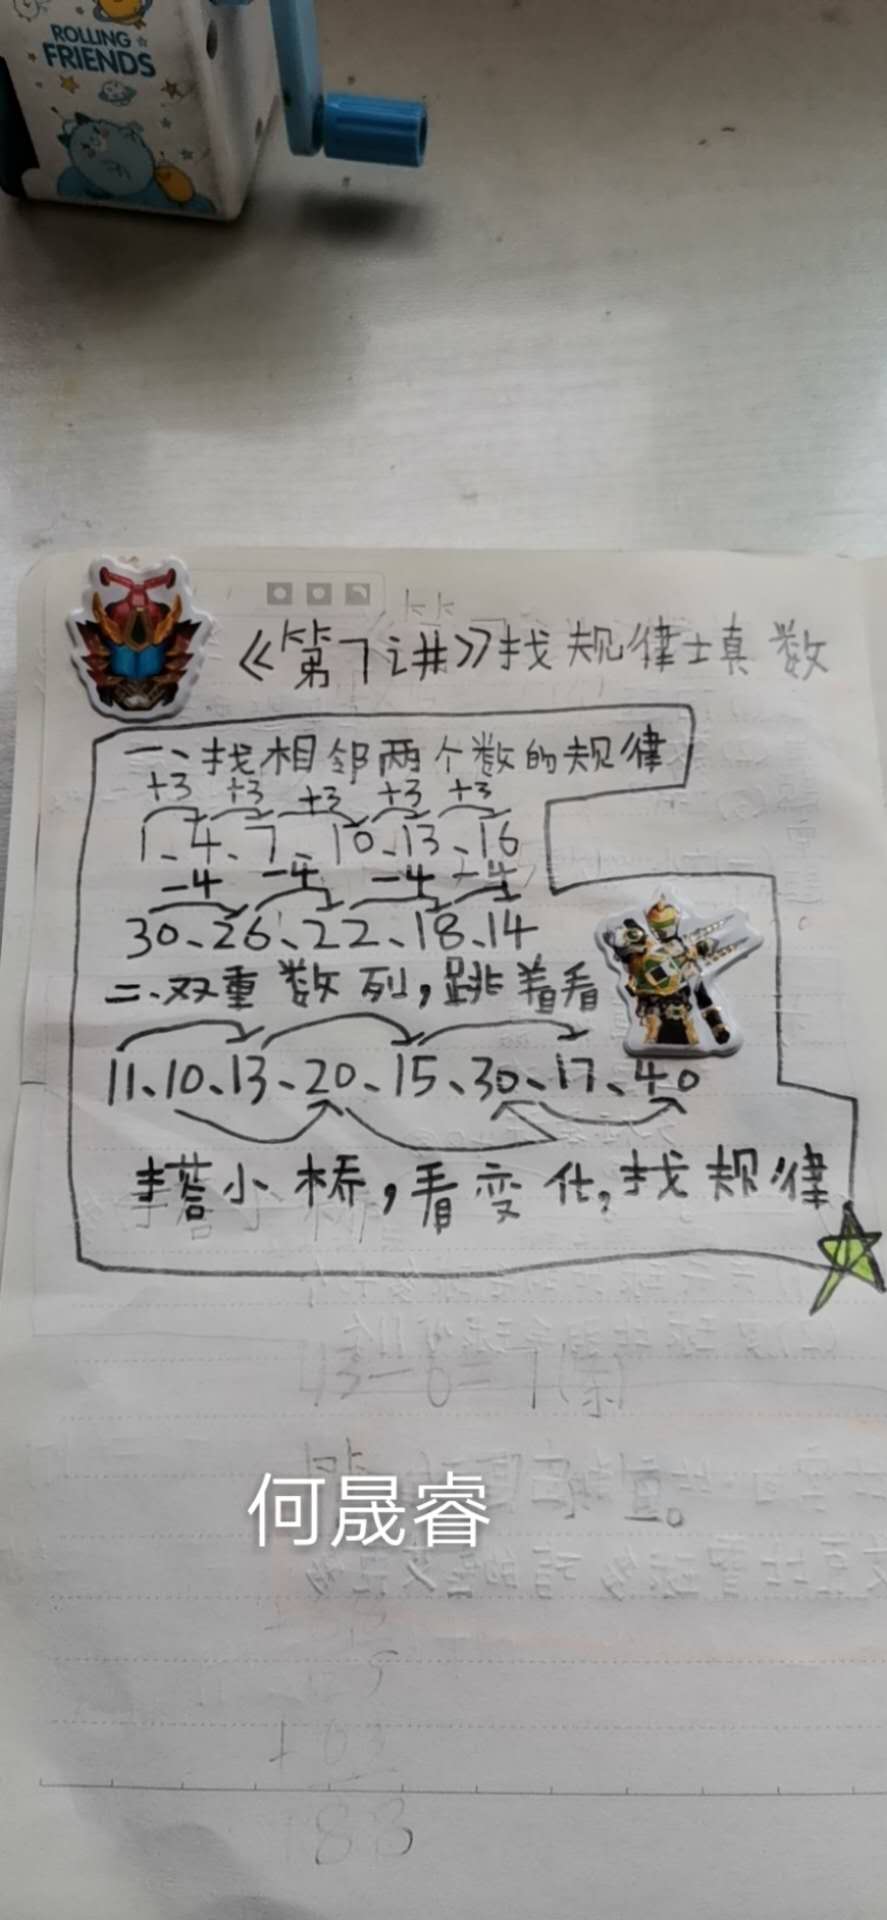 ROLLING
FRIENDS
《第7讲》找规律填数
一、找相邻两个数的规律
+3 +3 +3 +3 +3
1、4、7、10、13、16
-4 -4 -4 -4
30、26、22、18、14
二、双重数列,跳着看
11、10、13、20、15、30、17、40
搭小桥,看变化,找规律
43-6=
何晟睿
188